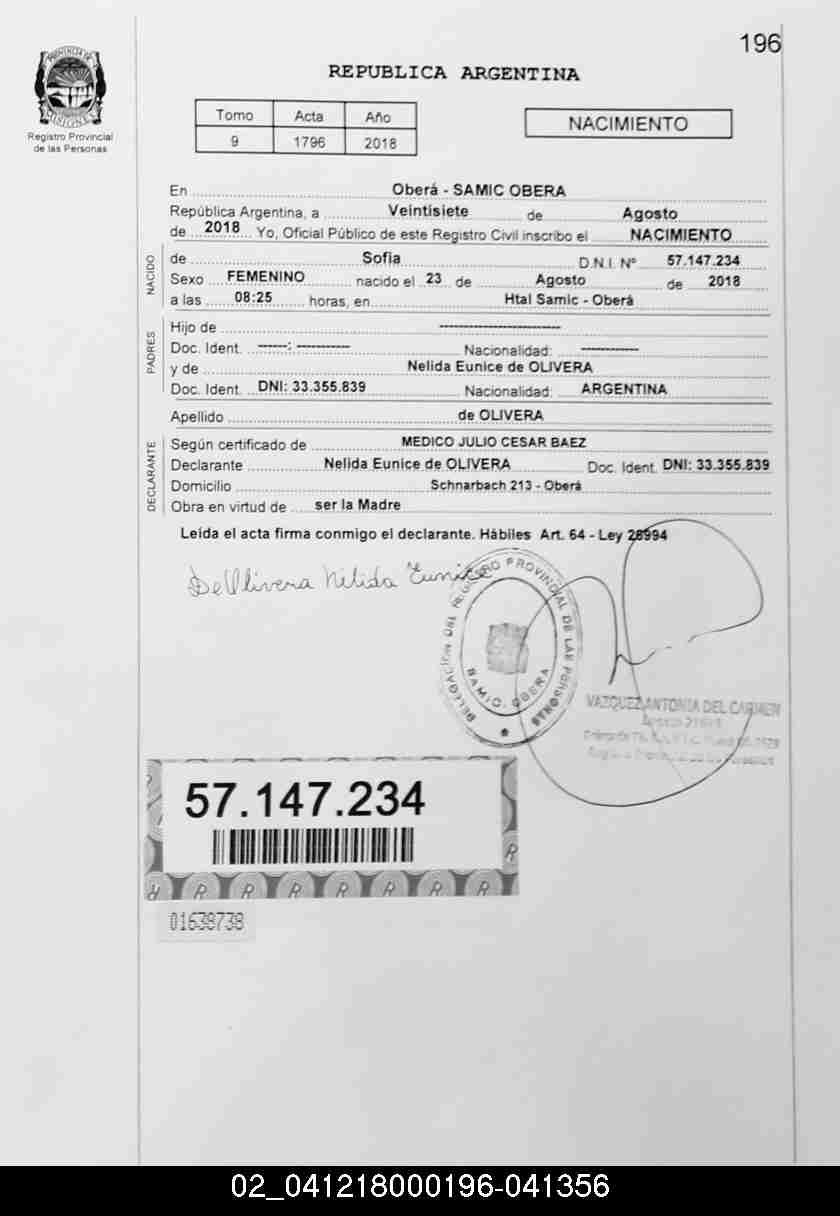 196
REPUBLICA ARGENTINA
PROVINCIA DE MISIONES
Registro Provincial
de las Personas
Tomo Acta Año
9 1796 2018
NACIMIENTO
En Oberá - SAMIC OBERA
República Argentina, a Veintisiete de Agosto
de 2018 Yo, Oficial Público de este Registro Civil inscribo el NACIMIENTO
NACIDO
de Sofia D.N.I. Nº 57.147.234
Sexo FEMENINO nacido el 23 de Agosto de 2018
a las 08:25 horas, en Htal Samic - Oberá
PADRES
Hijo de -------------------------
Doc. Ident. ------: ----------- Nacionalidad: ------------
y de Nelida Eunice de OLIVERA
Doc. Ident. DNI: 33.355.839 Nacionalidad: ARGENTINA
Apellido de OLIVERA
DECLARANTE
Según certificado de MEDICO JULIO CESAR BAEZ
Declarante Nelida Eunice de OLIVERA Doc. Ident. DNI: 33.355.839
Domicilio Schnarbach 213 - Oberá
Obra en virtud de ser la Madre
Leída el acta firma conmigo el declarante. Hábiles Art. 64 - Ley 26994
De Olivera Nelida Eunice
DELEGACION DEL REGISTRO PROVINCIAL DE LAS PERSONAS
SAMIC, OBERA
VAZQUEZ ANTONIA DEL CARMEN
57.147.234
R R R R R R R R R
01638738
02_041218000196-041356